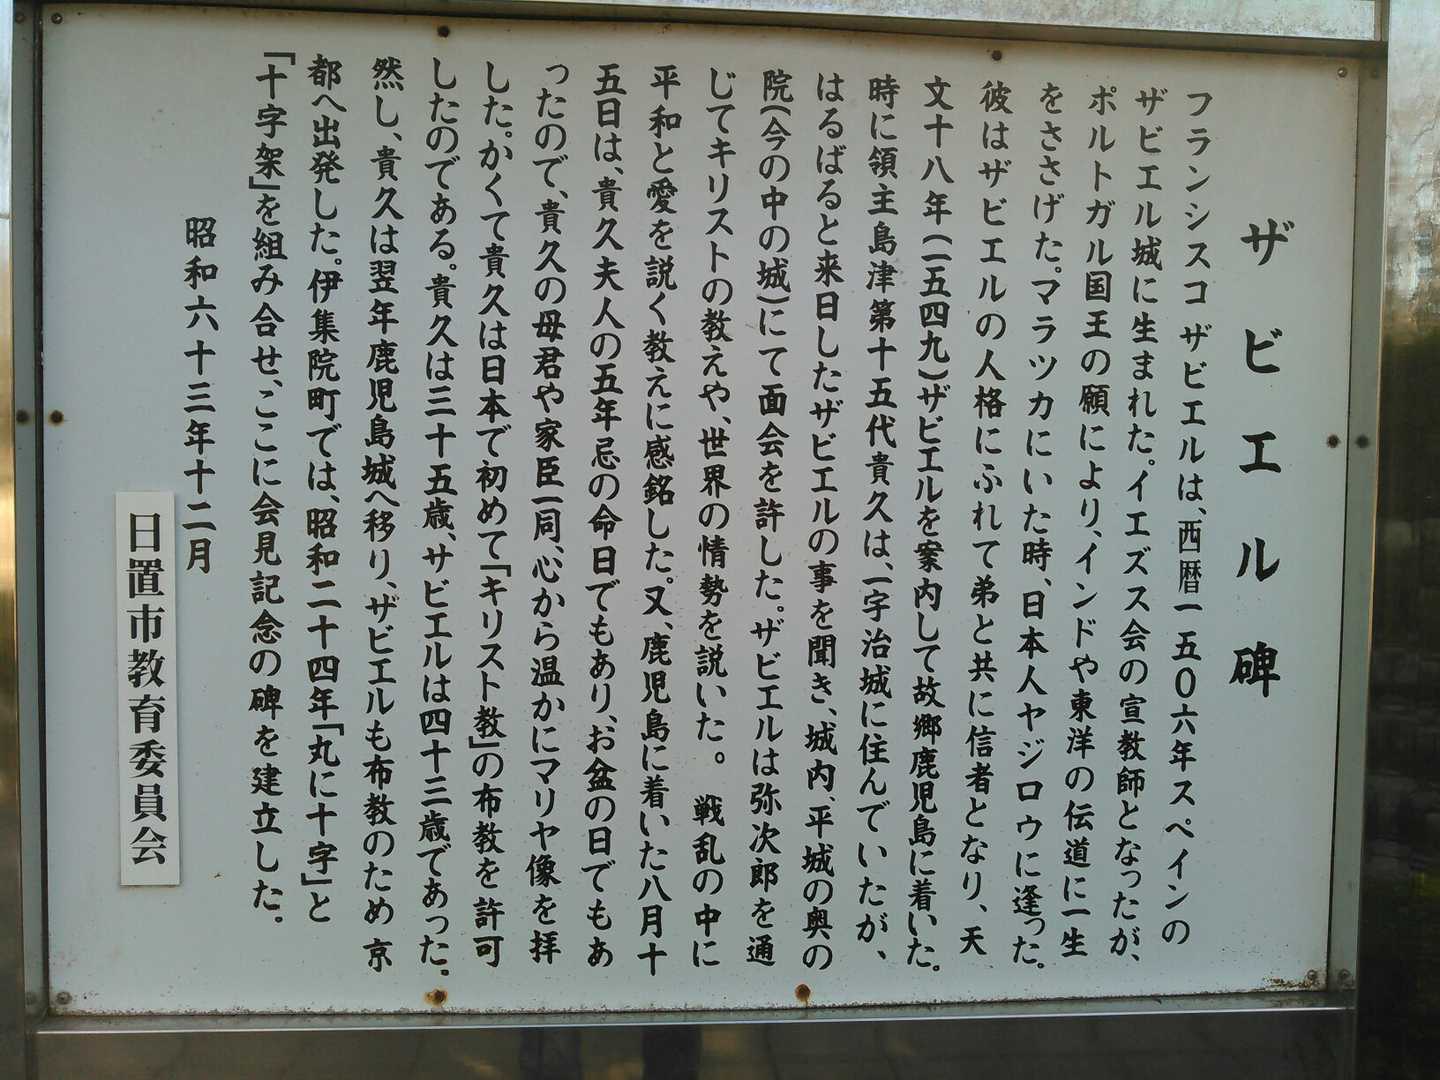 ザビエル碑
フランシスコ ザビエルは、西暦一五〇六年スペインの
ザビエル城に生まれた。イエズス会の宣教師となったが、
ポルトガル国王の願により、インドや東洋の伝道に一生
をささげた。マラツカにいた時、日本人ヤジロウに逢った。
彼はザビエルの人格にふれて弟と共に信者となり、天
文十八年(一五四九)ザビエルを案内して故郷鹿児島に着いた。
時に領主島津第十五代貴久は、一宇治城に住んでいたが、
はるばると来日したザビエルの事を聞き、城内、平城の奥の
院(今の中の城)にて面会を許した。ザビエルは弥次郎を通
じてキリストの教えや、世界の情勢を説いた。 戦乱の中に
平和と愛を説く教えに感銘した。又、鹿児島に着いた八月十
五日は、貴久夫人の五年忌の命日でもあり、お盆の日でもあ
ったので、貴久の母君や家臣一同、心から温かにマリヤ像を拝
した。かくて貴久は日本で初めて「キリスト教」の布教を許可
したのである。貴久は三十五歳、サビエルは四十三歳であった。
然し、貴久は翌年鹿児島城へ移り、ザビエルも布教のため京
都へ出発した。伊集院町では、昭和二十四年「丸に十字」と
「十字架」を組み合せ、ここに会見記念の碑を建立した。
昭和六十三年十二月
日置市教育委員会